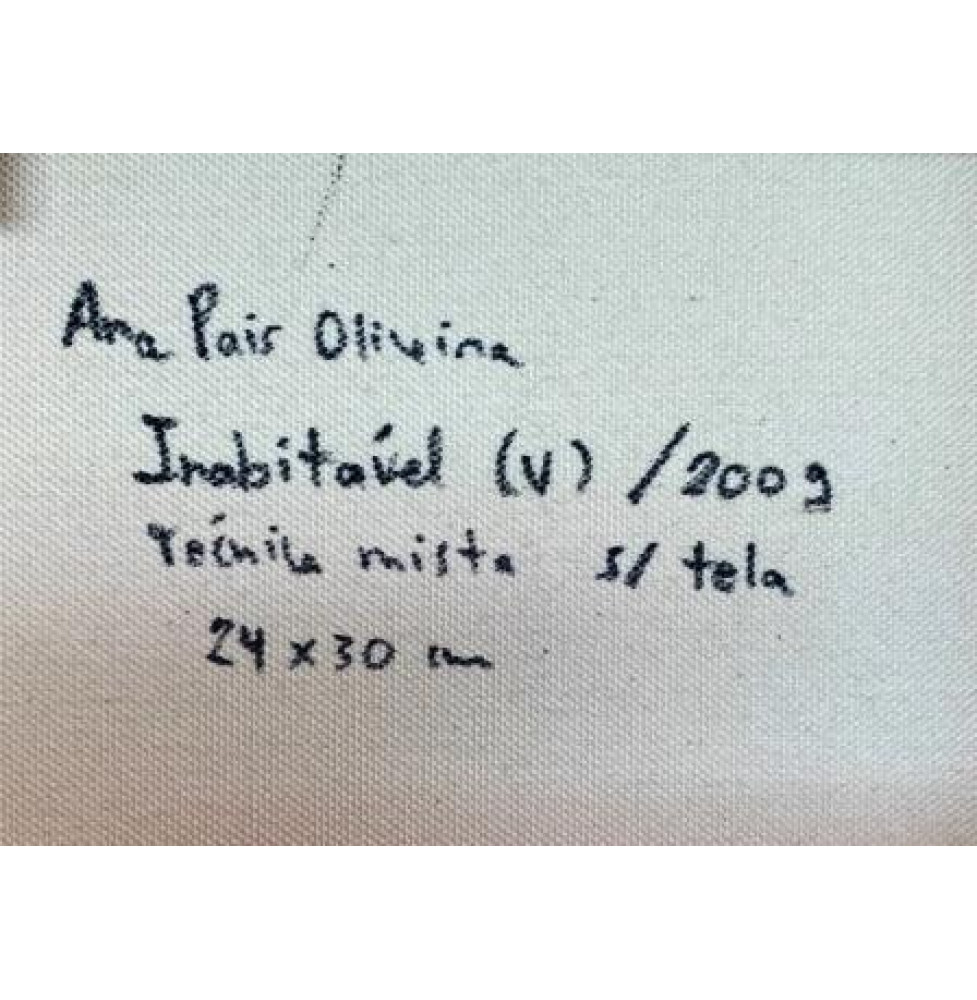 Ana Pais Oliveira
Inabitável (V) / 2009
Técnica mista s/ tela
24 x 30 cm